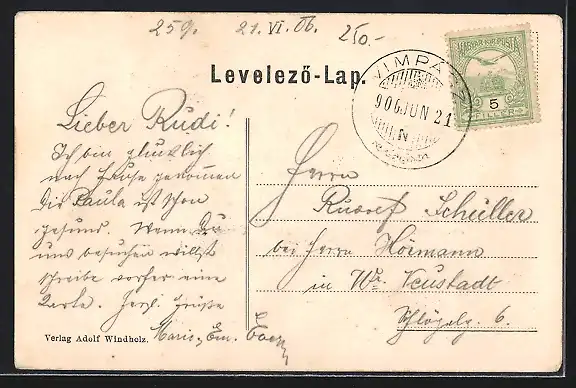 259. 21. VI. 06. 250.-
Levelező-Lap.
VIMPÁ
906 JUN 21
N
MAGYAR KIR. POSTA
5
FILLÉR
Lieber Rudi!
Ich bin glücklich
nach Hause gekommen
Die Paula ist schon
gesund. Wenn Du
uns besuchen willst
schreibe vorher eine
Karte. Herzl. Grüße
Marie, Em.
Herrn
Schüller
bei Herrn Hörmann
in Wr. Neustadt
Schlögelg. 6.
Verlag Adolf Windholz.